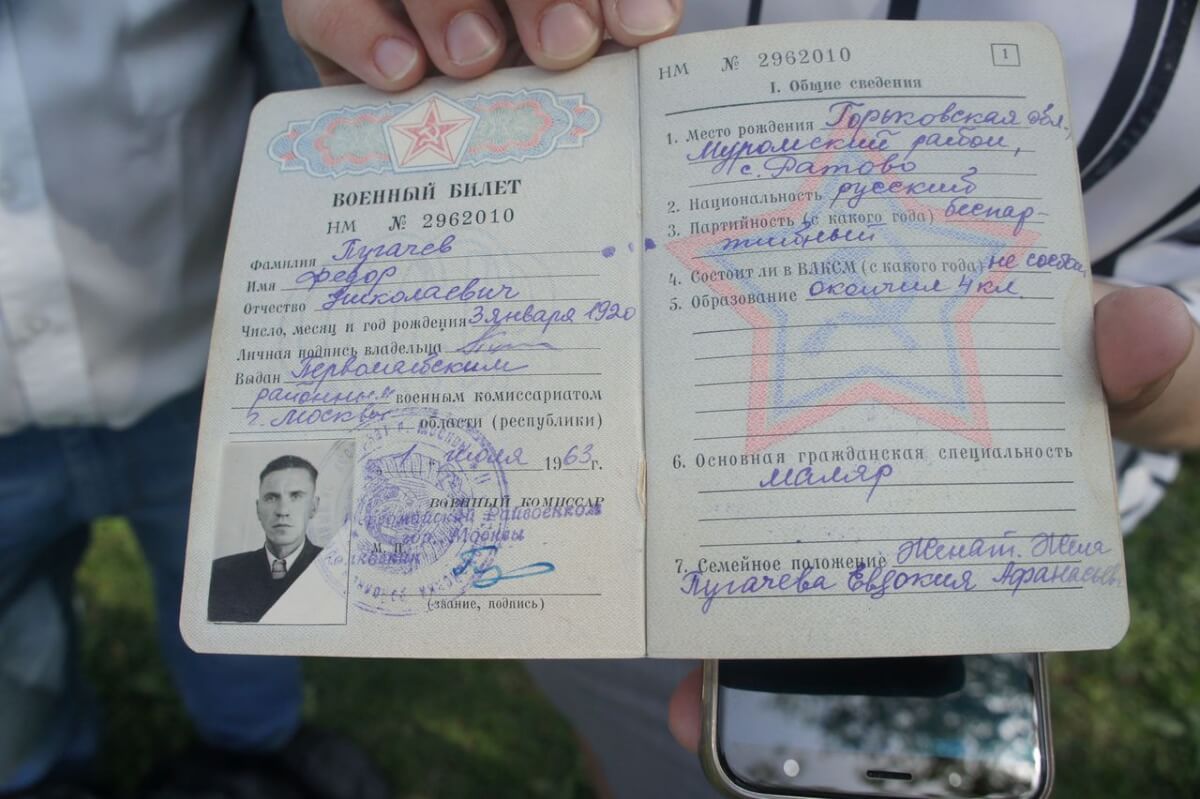 ВОЕННЫЙ БИЛЕТ
НМ № 2962010
Фамилия Пугачев
Имя Федор
Отчество Николаевич
Число, месяц и год рождения 3 января 1920
Личная подпись владельца
Выдан Первомайским
районным военным комиссариатом
г. Москвы области (республики)
1 июля 1963 г.
ВОЕННЫЙ КОМИССАР
Первомайской Райвоенком
гор. Москвы
М. П.
полковник
(звание, подпись)
НМ № 2962010
1
I. Общие сведения
1. Место рождения Горьковская обл.,
Муромский район,
с. Ратово
2. Национальность русский
3. Партийность (с какого года) беспар-
тийный
4. Состоит ли в ВЛКСМ (с какого года) не состои
5. Образование окончил 4 кл.
6. Основная гражданская специальность
маляр
7. Семейное положение Женат. Жена
Пугачева Евдокия Афанасьев.